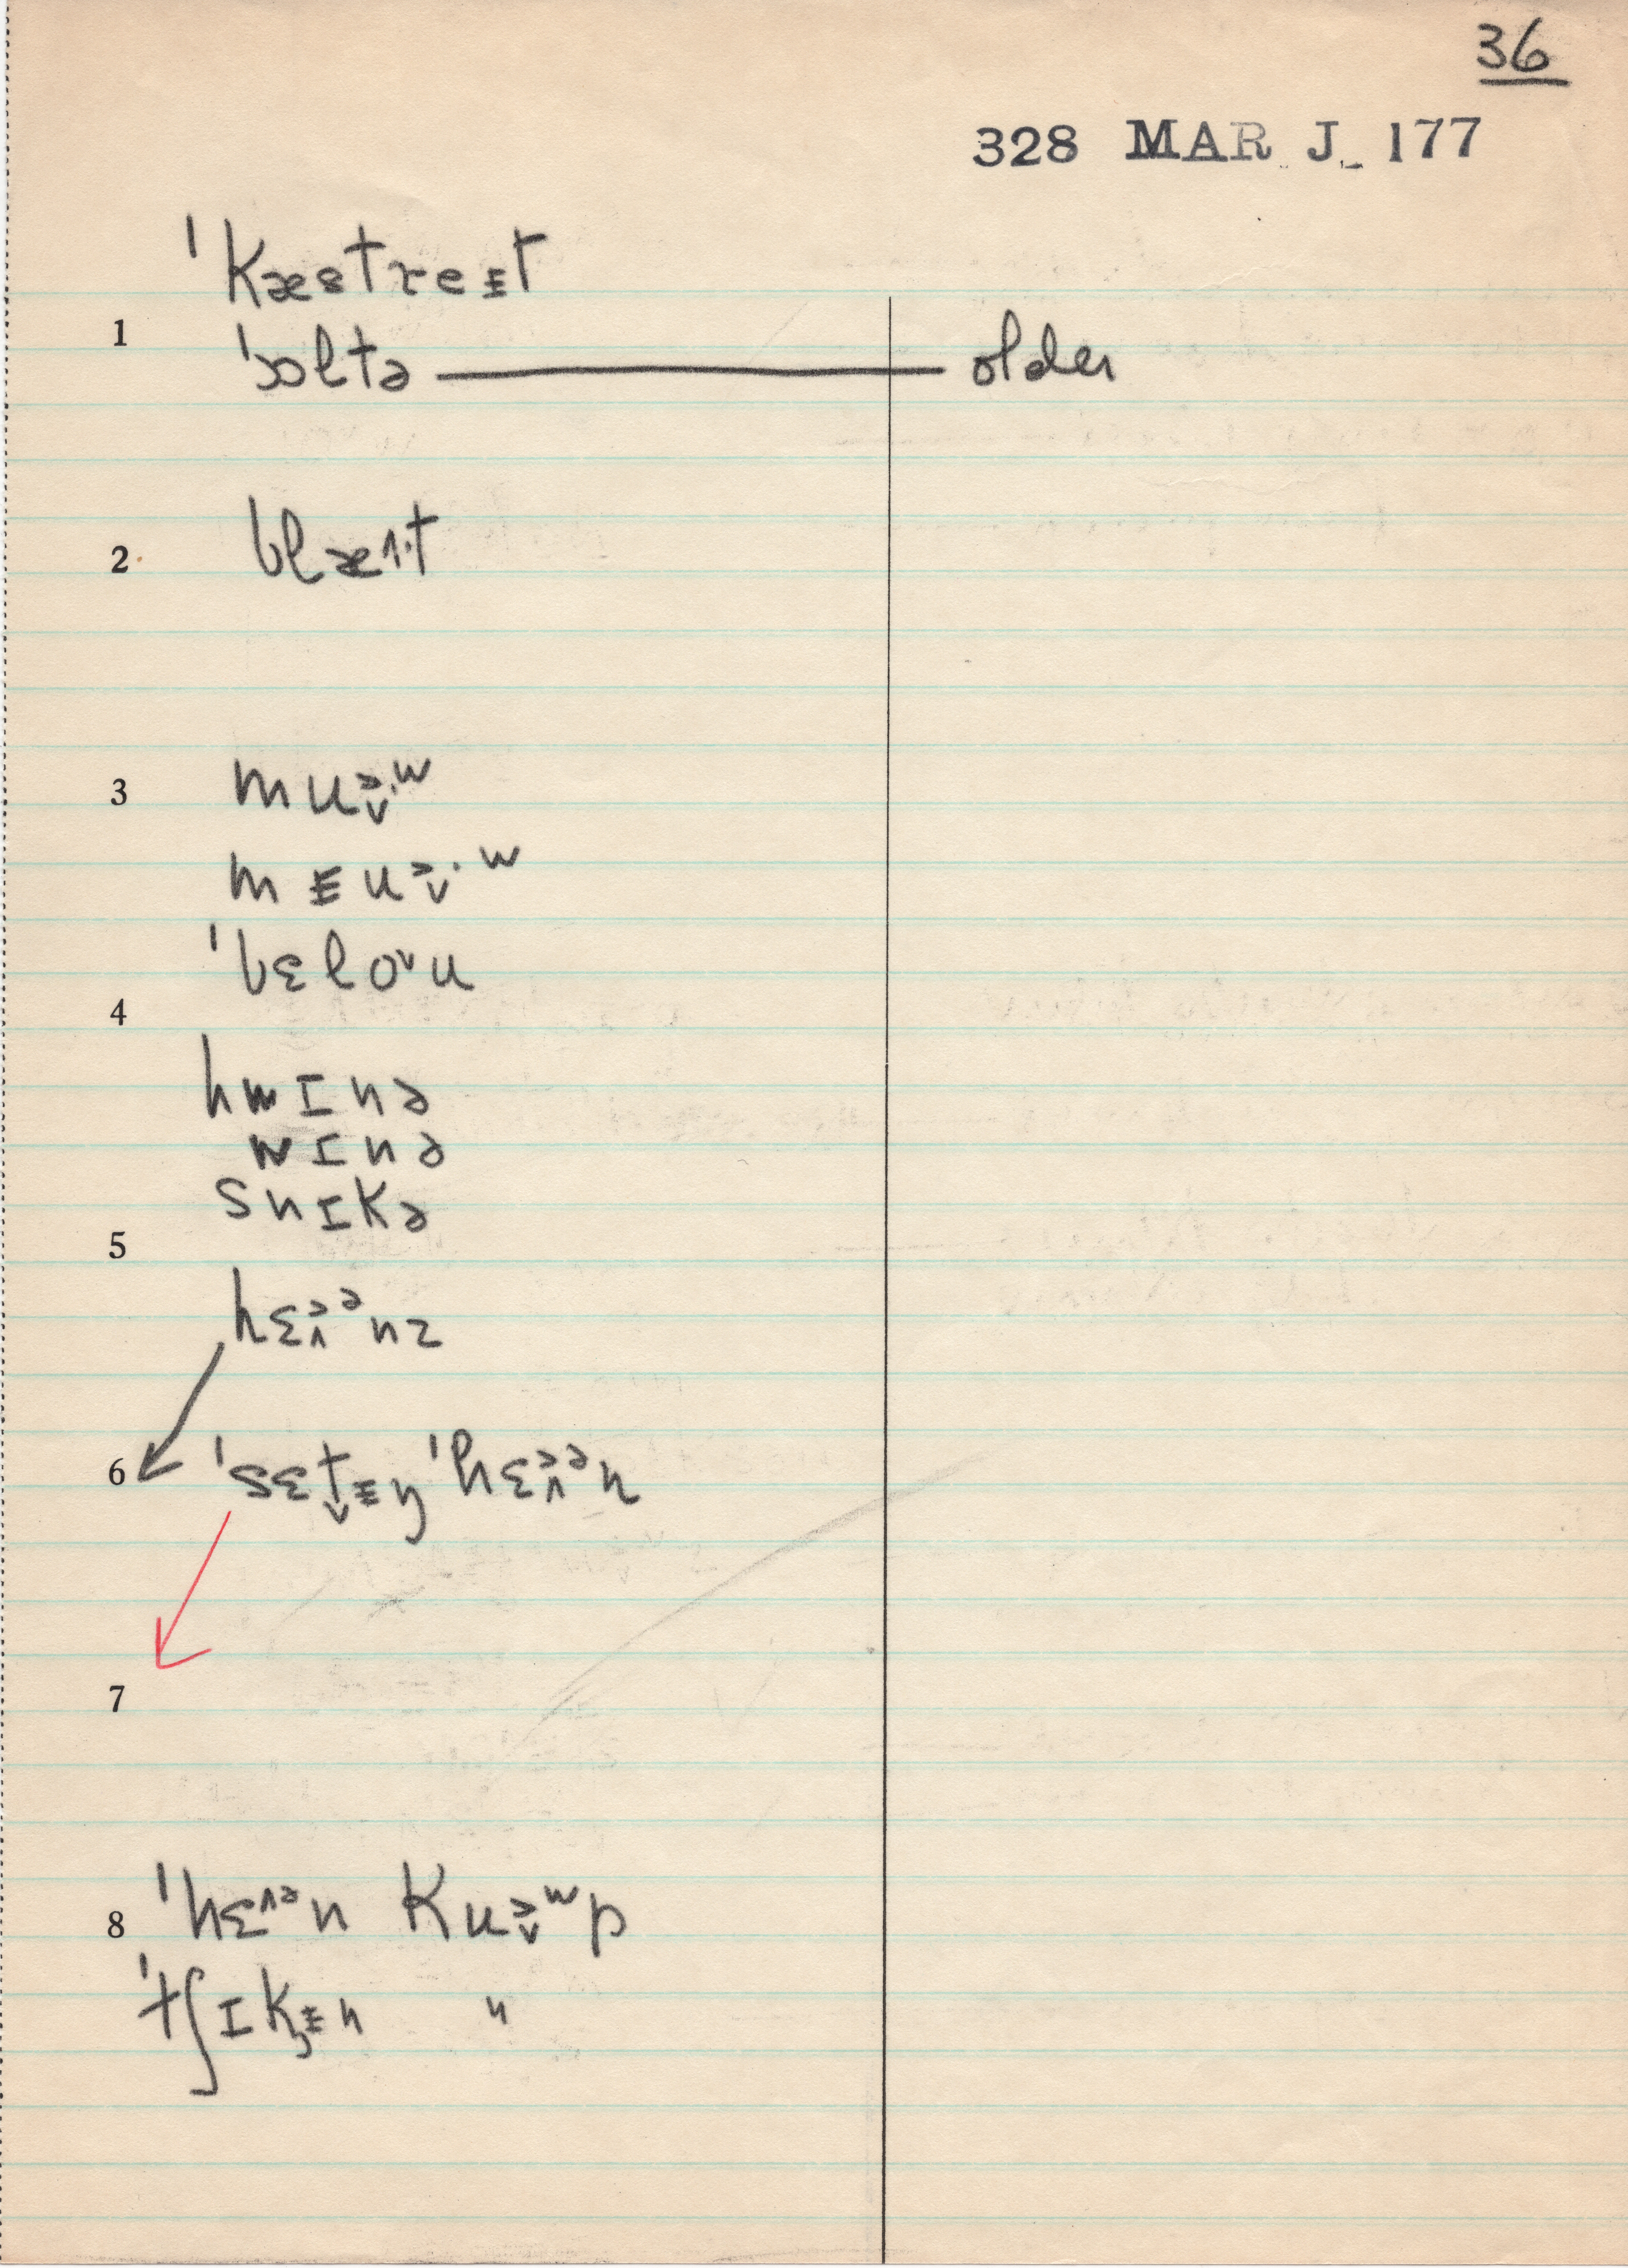 36
328 MAR J. 177
ˈkæstreᵻt
1
ˈɔltə — older
2 blæˑ^t
3 muə̬·ʷ
mᵻuə̬·ʷ
ˈbɛlo˅u
4
hwɪnə
wɪnə
snɪkə
5
hɛə̭ᵊnz
6 ˈsɛt̬ᵻŋˈhɛə̭ᵊn
7
8 ˈhɛ^ᵊn kuə̬ʷp
ˈtʃɪkᵻn "